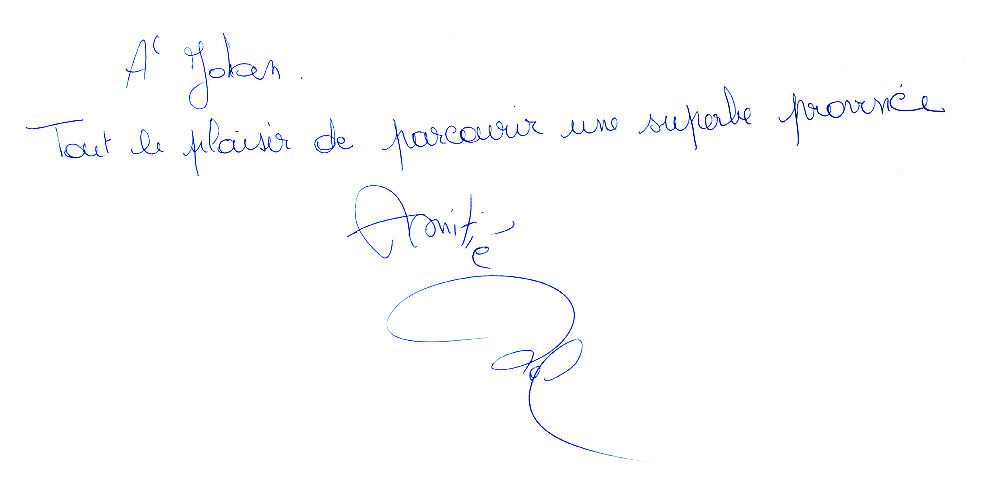 A' Yohan.
Tout le plaisir de parcourir une superbe province
Amitié